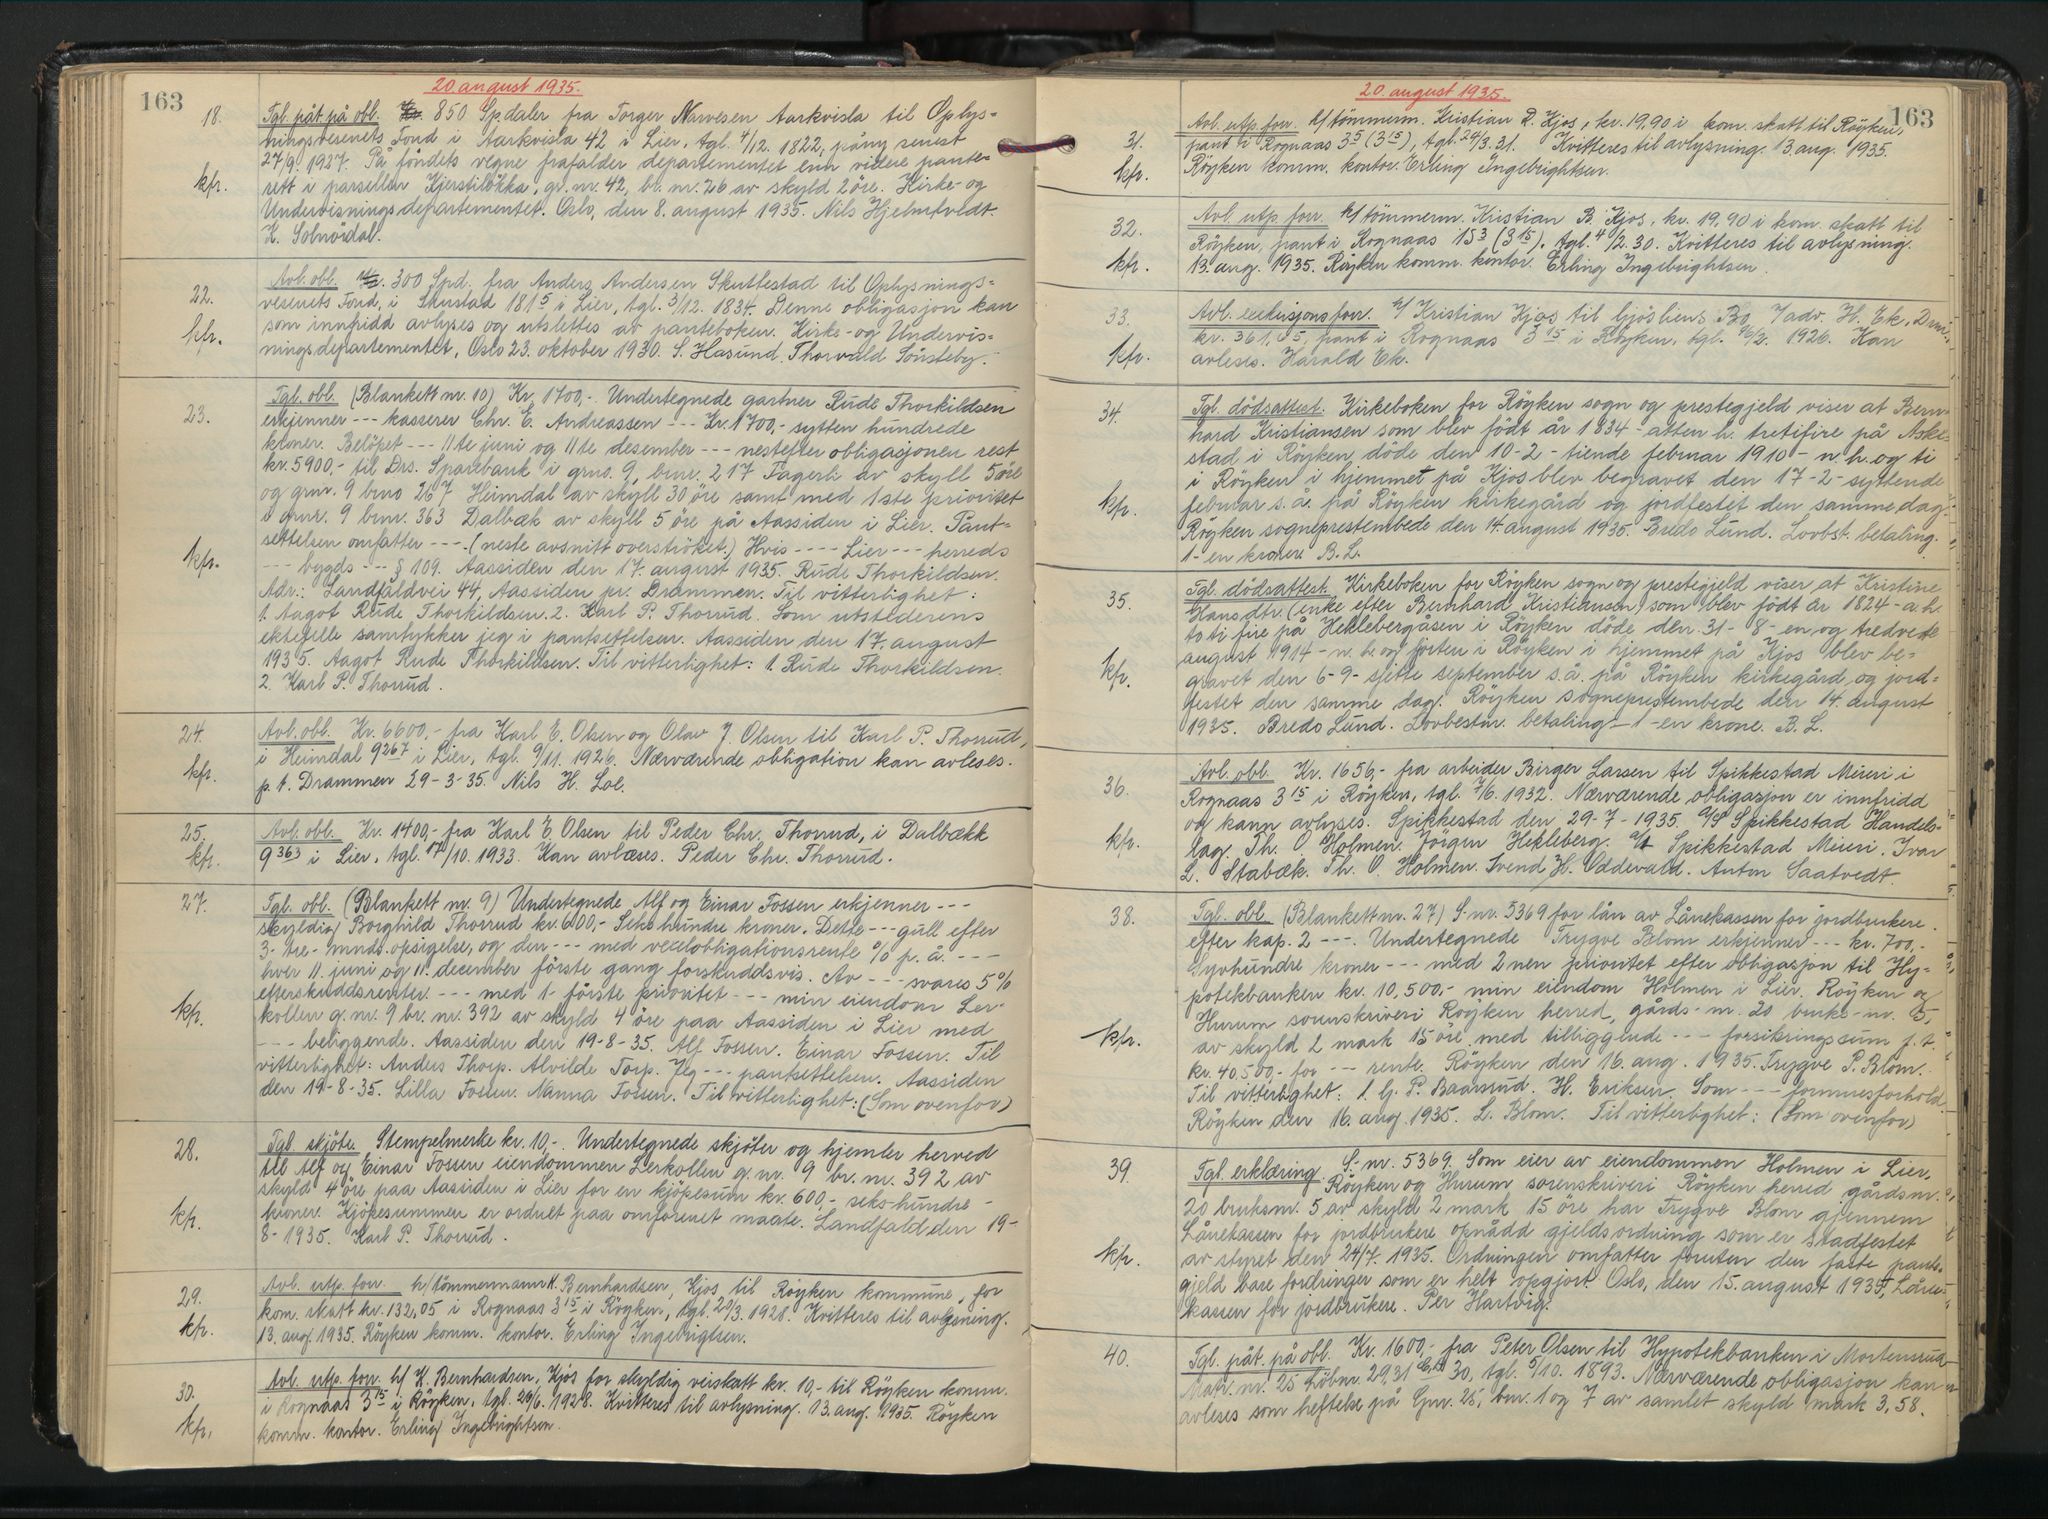 20 august 1935.
163
18.
kfr.
Tgl. påt. på obl. Kr. 850 Spdaler fra Torger Narvesen Aarkvisla til Oplys-
ningsvesenets Fond i Aarkvisla 42 i Lier, tgl. 4/12. 1822, påny senest
27/9. 1927. På fondets vegne frafalder departementet enn videre pante-
rett i parsellen Kjerstiløkka, gr. nr. 42, br. nr. 26 av skyld 2 öre. Kirke- og
Undervisningsdepartementet. Oslo, den 8. august 1935. Nils Hjelmtvedt.
K. Solnördal.
22.
kfr.
Avl. obl. Kr. 300 Spd. fra Anders Andersen Skuttestad til Oplysnings-
vesenets Fond, i Skustad 181 5 i Lier, tgl. 3/12. 1834. Denne obligasjon kan
som innfridd avlyses og utslettes av panteboken. Kirke- og Undervis-
ningsdepartementet, Oslo 23. oktober 1930. S. Hasund. Thorvald Sönsteby.
23.
kfr.
Tgl. obl. (Blankett nr. 10) Kr. 1700,- Undertegnede gartner Rude Thorkildsen
erkjenner --- kasserer Chr. E. Andreassen --- Kr. 1700,- sytten hundrede
kroner. Belöpet --- 11te juni og 11te desember --- nestefter obligasjonen rest
kr. 5900,- til Drs. Sparebank i grno. 9, brnr. 217 Fagerli av skyll 5 öre
og grnr. 9 brno 267 Heimdal av skyll 30 öre samt med 1ste prioritet
i grnr. 9 brnr. 363 Dalbæk av skyll 5 öre på Aassiden i Lier. Pant-
settelsen omfatter ---. (neste avsnitt overströket.) Hvis ---- Lier --- herreds
--- bygds --- § 109. Aassiden den 17. august 1935. Rude Thorkildsen.
Adr.: Landfaldvei 44, Aassiden pr. Drammen. Til vitterlighet:
1. Aagot Rude Thorkildsen. 2. Karl P. Thorrud. Som utstederens
ektefelle samtykker jeg i pantsettelsen. Aassiden den 17. august
1935. Aagot Rude Thorkildsen. Til vitterlighet: 1. Rude Thorkildsen.
2. Karl P. Thorrud.
24.
kfr.
Avl. obl. Kr. 6600,- fra Karl E. Olsen og Olav J. Olsen til Karl P. Thorrud,
i Heimdal 9 267 i Lier, tgl. 9/11. 1926. Nærværende obligation kan avleses.
p. t. Drammen 29-3-35. Nils H. Loe.
25.
kfr.
Avl. obl. Kr. 1400,- fra Karl E. Olsen til Peder Chr. Thorrud, i Dalbækk
9 363 i Lier, tgl. 17/10. 1933. Kan avlæses. Peder Chr. Thorrud.
27.
kfr.
Tgl. obl. (Blankett nr. 9) Undertegnede Alf og Einar Fossen erkjenner ---
skyldig Borghild Thorrud kr. 600,- Sekshundre kroner. Dette --- gull efter
3- tre- mnds. opsigelse, og den --- med vexelobligationsrente % p. å. ---
hver 11. juni og 11. december förste gang forskuddsvis. Av --- svares 5%
efterskuddsrenter. --- med 1- förste prioritet --- min eiendom Ler-
kollen g. nr. 9 br. nr. 392 av skyld 4 öre paa Aassiden i Lier med
--- beliggende. Aassiden den 19-8-35. Alf Fossen. Einar Fossen. Til
vitterlighet: Anders Thorp. Alvilde Torp. Jeg --- pantsettelsen. Aassiden
den 19-8-35. Lilla Fossen. Nanna Fossen. Til vitterlighet: (Som ovenfor)
28.
kfr.
Tgl. skjöte. Stempelmerke kr. 10,-. Undertegnede skjöter og hjemler herved
til Alf og Einar Fossen eiendommen Lerkollen g. nr. 9 br. nr. 392 av
skyld 4 öre paa Aassiden i Lier for en kjöpesum kr. 600,- seks-hundre-
kroner. Kjöpesummen er ordnet paa omforenet maate. Landfald den 19-
8-1935. Karl P. Thorrud.
29.
kfr.
Avl. utp. forr. h/ tömmermann K. Bernhardsen, Kjos til Röyken kommune, for
kom. skatt kr. 132,05 i Rognaas 3 15 i Röyken, tgl. 20/3. 1928. Kvitteres til avlysning.
13. aug. 1935. Röyken komm. kontor. Erling Ingebrigtsen.
30.
kfr.
Avl. utp. forr. h/ K. Bernhardsen, Kjos for skyldig veiskatt kr. 10,- til Röyken komm.
i Rognaas 3 15 i Röyken, tgl. 26/6. 1928. Kvitteres til avlysning. 13. aug. 1935. Röyken
komm. kontor. Erling Ingebrigtsen.
20. august 1935.
163
31.
kfr.
Avl. utp. forr. h/ tömmerm. Kristian B. Kjos, kr. 19,90 i kom. skatt til Röyken,
pant i Rognaas 3 5 (3 15), tgl. 24/3. 31. Kvitteres til avlysning. 13. aug. 1935.
Röyken komm. kontor. Erling Ingebrightsen.
32.
kfr.
Avl. utp. forr. h/ tömmerm. Kristian B. Kjos, kr. 19,90 i kom. skatt til
Röyken, pant i Rognaas 15 3 (3 15), tgl. 4/2. 30. Kvitteres til avlysning.
13. aug. 1935. Röyken komm. kontor. Erling Ingebrightsen.
33.
kfr.
Avl. exekusjonsforr. h/ Kristian Kjos til Gjösbens Bo v/adv. H. Ek, Drm.,
kr. 361,65, pant i Rognaas 3 15 i Röyken, tgl. 16/2. 1926. Kan
avleses. Harald Ek.
34.
kfr.
Tgl. dödsattest. Kirkeboken for Röyken sogn og prestegjeld viser at Bern-
hard Kristiansen som blev födt år 1834- atten h. trettifire på Aske-
stad i Röyken, döde den 10-2- tiende februar 1910- n. h. og ti
i Röyken i hjemmet på Kjos blev begravet den 17-2- syttende
februar s. å. på Röyken kirkegård og jordfestet den samme dag.
Röyken sogneprestembede den 14. august 1935. Bredo Lund. Lovbst. betaling.
1- en krone. B. L.
35.
kfr.
Tgl. dödsattest. Kirkeboken for Röyken sogn og prestegjeld viser at Kristine
Hans dtr. (enke efter Bernhard Kristiansen) som blev födt år 1824- a. h.
to ti fire på Heklebergåsen i Röyken döde den 31-8- en og tredvede
august 1914- n. h. og forten i Röyken i hjemmet på Kjos blev be-
gravet den 6-9- sjette september s. å. på Röyken kirkegård og jord-
festet den samme dag. Röyken sogneprestembede den 14. august
1935. Bredo Lund. Lovbestm. betaling- 1- en krone. B. L.
36.
kfr.
Avl. obl. Kr. 1656,- fra arbeider Birger Larsen til Spikkestad Mieri i
Rognaas 3 15 i Röyken, tgl. 7/6. 1932. Nærværende obligasjon er innfridd
og kann avlyses. Spikkestad den 29-7-1935. A/S Spikkestad Handels-
lag. Th. O. Holmen. Jörgen Hekleberg. A/L Spikkestad Mieri. Ivar
L. Stabæk. Th. O. Holmen. Svend H. Oddevald. Anton Saatvedt.
38.
kfr.
Tgl. obl. (Blankett nr. 27) S. nr. 5369 for lån av Lånekassen for jordbrukere
efter kap. 2 ---. Undertegnede Trygve Blom erkjenner --- kr. 700,-
Syvhundre kroner --- med 2nen prioritet efter obligasjon til Hy-
potekbanken kr. 10,500,- min eiendom Holmen i Lier, Röyken og
Hurum sorenskriveri Röyken herred, gårds- nr. 20 bruks- nr. 5,
av skyld 2 mark 15 öre, med tilliggende --- forsikringssum p. t.
kr. 40,500,- for --- rente. Röyken den 16. aug. 1935. Trygve P. Blom.
Til vitterlighet: 1. G. P. Baarsrud. H. Eriksen. Som --- formuesforhold.
Röyken den 16. aug. 1935. L. Blom. Til vitterlighet: (Som ovenfor)
39.
kfr.
Tgl. erklæring. S. nr. 5369. Som eier av eiendommen Holmen i Lier,
Röyken og Hurum sorenskriveri Röyken herred gårdsnr.
20 bruksnr. 5 av skyld 2 mark 15 öre har Trygve Blom gjennem
Lånekassen for jordbrukere opnådd gjeldsordning som er stadfestet
av styret den 24/7. 1935. Ordningen omfatter foruten den faste pante-
gjeld bare fordringer som er helt opgjort. Oslo, den 15. august 1935. Låne-
kassen for jordbrukere. Per Hartvig.
40.
Tgl. påt. på obl. Kr. 1600,- fra Peter Olsen til Hypotekbanken i Mortensrud
Matr. nr. 25 löbnr. 29, 31 30, tgl. 5/10. 1893. Nærværende obligasjon kan
avleses som heftelse på Gnr. 25, bnr. 1 og 7 av samlet skyld mark 3,58.